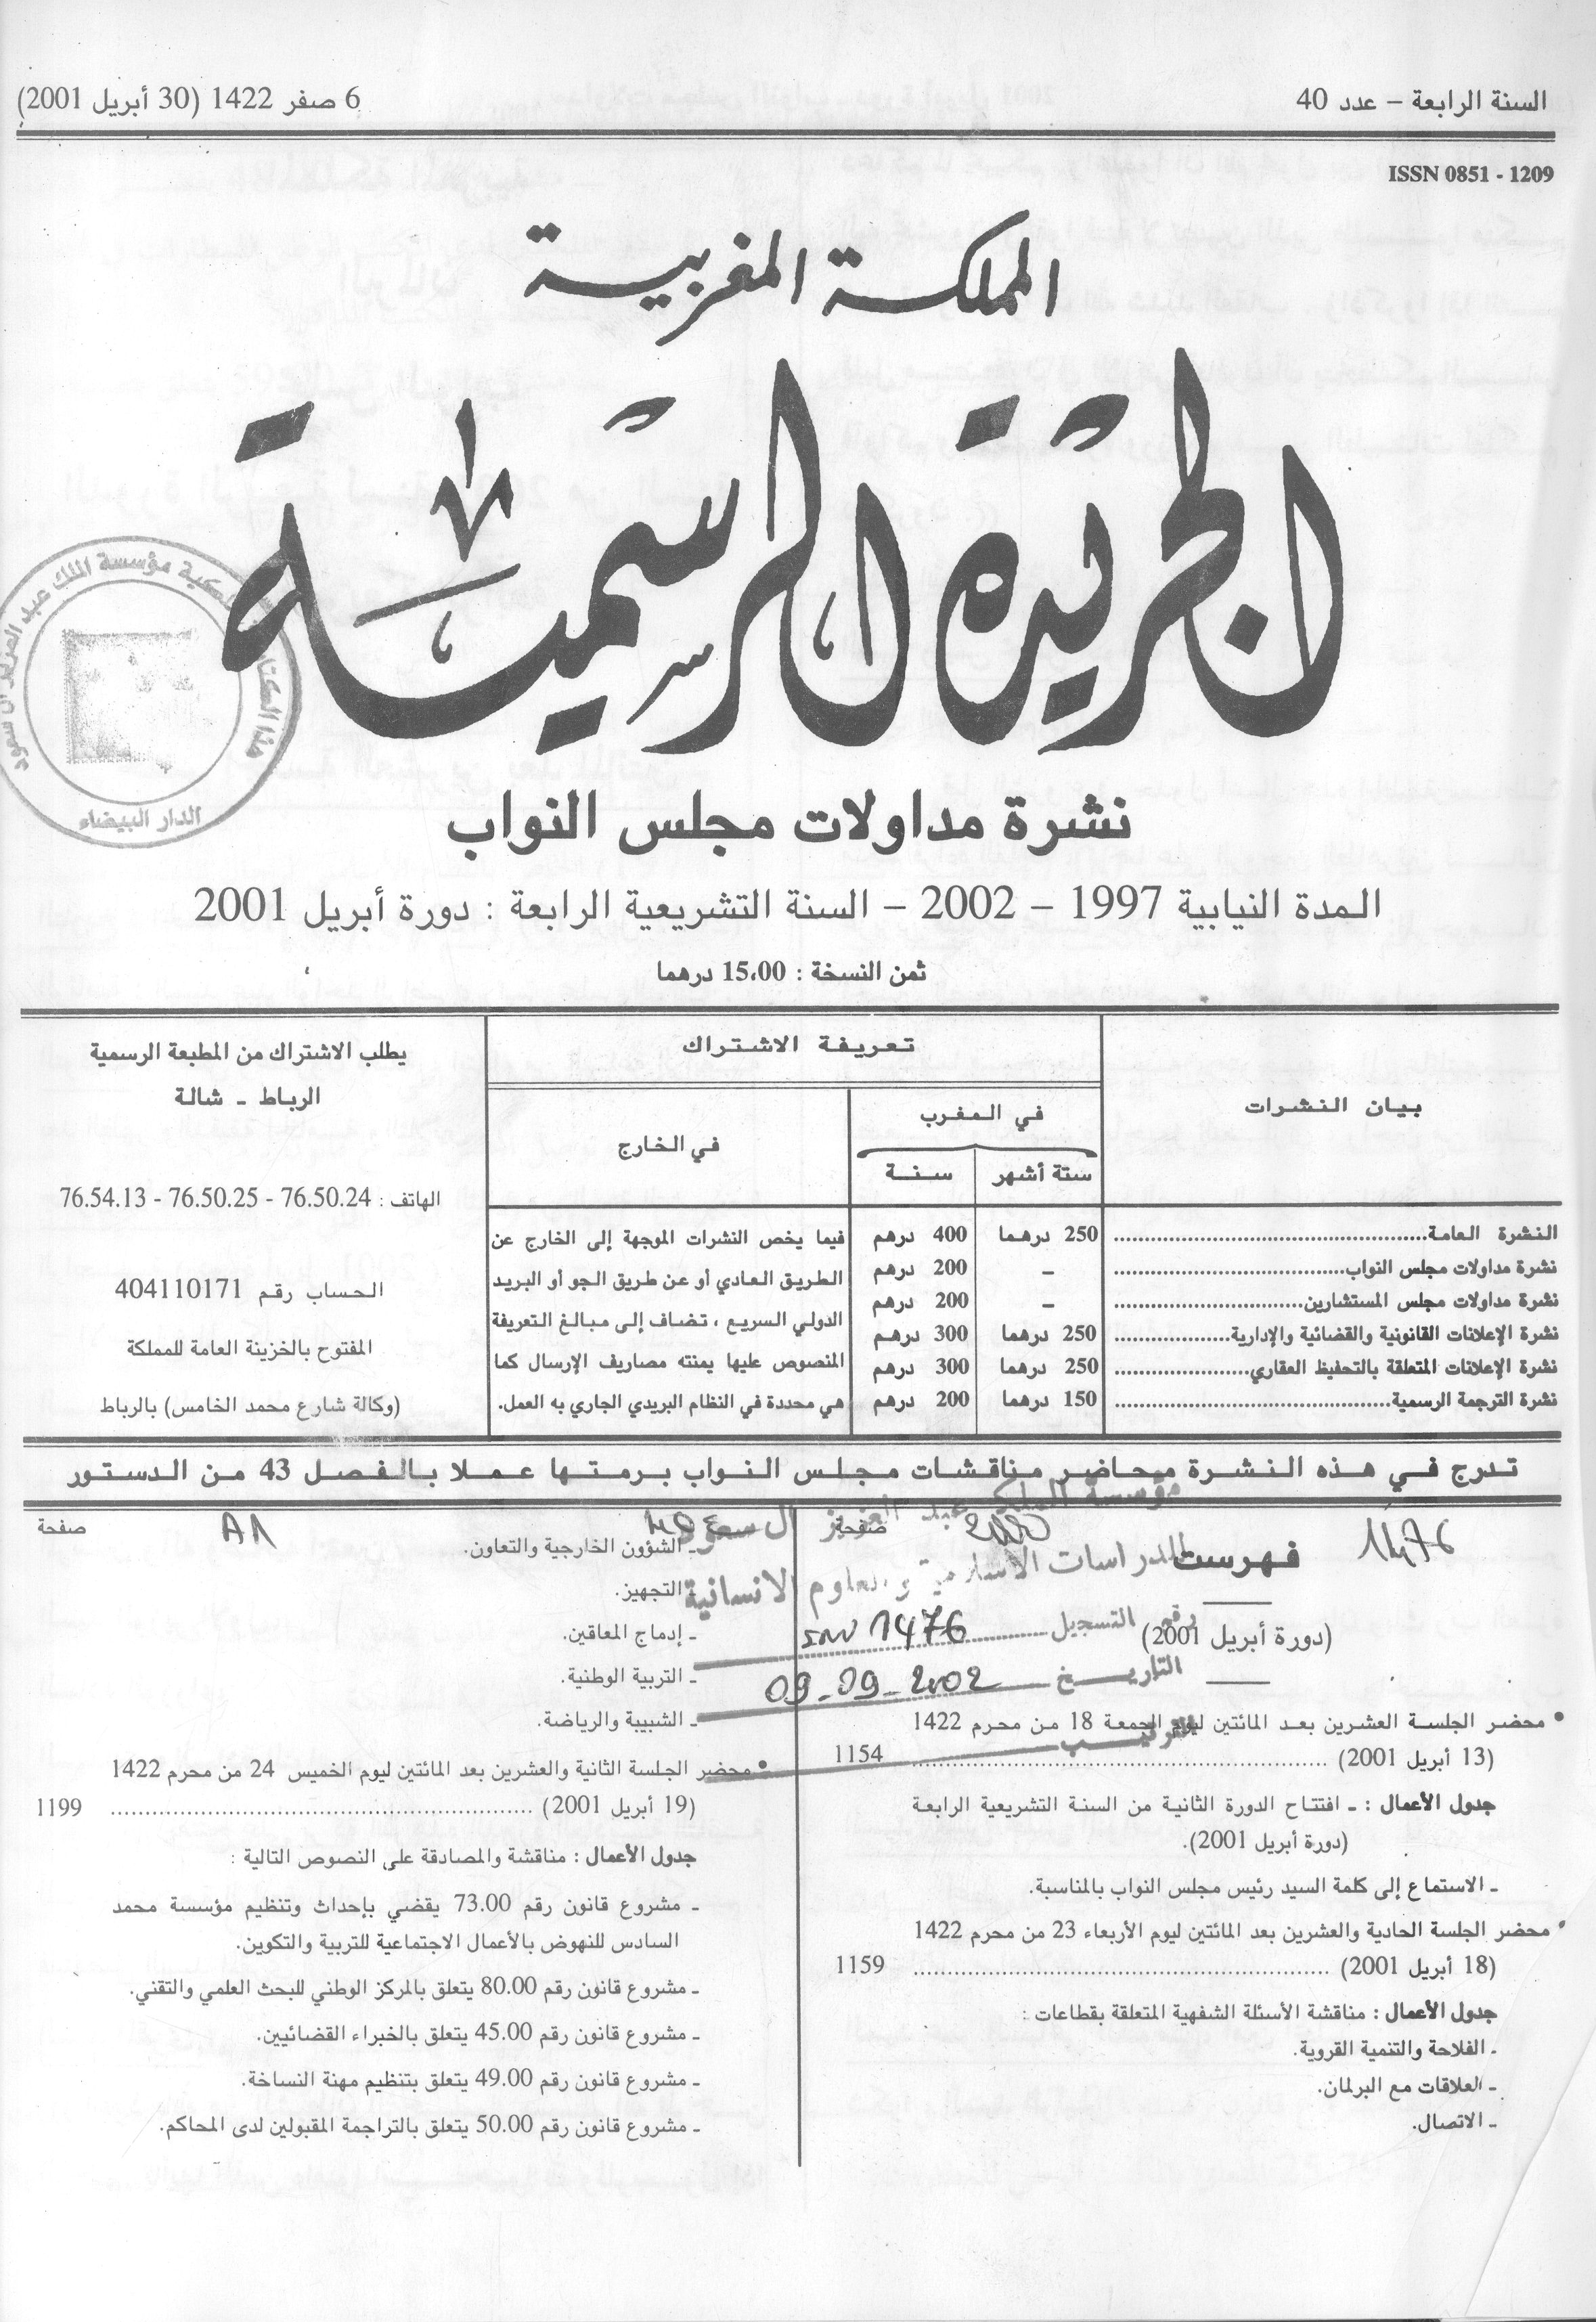 السنة الرابعة – عدد 40
6 صفر 1422 (30 أبريل 2001)
ISSN 0851 - 1209
المملكة المغربية
الجريدة الرسمية
نشرة مداولات مجلس النواب
المدة النيابية 1997 – 2002 – السنة التشريعية الرابعة : دورة أبريل 2001
ثمن النسخة : 15،00 درهما
مكتبة مؤسسة الملك عبد العزيز آل سعود
الدار البيضاء
بيان النشرات
تعريفة الاشتراك
في المغرب
ستة أشهر
سنة
في الخارج
النشرة العامة 250 درهما 400 درهم
نشرة مداولات مجلس النواب – 200 درهم
نشرة مداولات مجلس المستشارين – 200 درهم
نشرة الإعلانات القانونية والقضائية والإدارية 250 درهما 300 درهم
نشرة الإعلانات المتعلقة بالتحفيظ العقاري 250 درهما 300 درهم
نشرة الترجمة الرسمية 150 درهما 200 درهم
فيما يخص النشرات الموجهة إلى الخارج عن
الطريق العادي أو عن طريق الجو أو البريد
الدولي السريع ، تضاف إلى مبالغ التعريفة
المنصوص عليها يمنته مصاريف الإرسال كما
هي محددة في النظام البريدي الجاري به العمل.
يطلب الاشتراك من المطبعة الرسمية
الرباط ـ شالة
الهاتف : 76.50.24 - 76.50.25 - 76.54.13
الحساب رقم 404110171
المفتوح بالخزينة العامة للمملكة
(وكالة شارع محمد الخامس) بالرباط
تدرج في هذه النشرة محاضر مناقشات مجلس النواب برمتها عملا بالفصل 43 من الدستور
مؤسسة الملك عبد العزيز آل سعود
للدراسات الاسلامية والعلوم الانسانية
رقم التسجيل 1476
التاريخ 09-09-2002
1476
صفحة
فهرست
(دورة أبريل 2001)
• محضر الجلسة العشرين بعد المائتين ليوم الجمعة 18 من محرم 1422
(13 أبريل 2001) 1154
جدول الأعمال : ـ افتتاح الدورة الثانية من السنة التشريعية الرابعة
(دورة أبريل 2001).
ـ الاستماع إلى كلمة السيد رئيس مجلس النواب بالمناسبة.
• محضر الجلسة الحادية والعشرين بعد المائتين ليوم الأربعاء 23 من محرم 1422
(18 أبريل 2001) 1159
جدول الأعمال : مناقشة الأسئلة الشفهية المتعلقة بقطاعات :
ـ الفلاحة والتنمية القروية.
ـ العلاقات مع البرلمان.
ـ الاتصال.
صفحة
ـ الشؤون الخارجية والتعاون.
ـ التجهيز.
ـ إدماج المعاقين.
ـ التربية الوطنية.
ـ الشبيبة والرياضة.
• محضر الجلسة الثانية والعشرين بعد المائتين ليوم الخميس 24 من محرم 1422
(19 أبريل 2001) 1199
جدول الأعمال : مناقشة والمصادقة على النصوص التالية :
ـ مشروع قانون رقم 73.00 يقضي بإحداث وتنظيم مؤسسة محمد
السادس للنهوض بالأعمال الاجتماعية للتربية والتكوين.
ـ مشروع قانون رقم 80.00 يتعلق بالمركز الوطني للبحث العلمي والتقني.
ـ مشروع قانون رقم 45.00 يتعلق بالخبراء القضائيين.
ـ مشروع قانون رقم 49.00 يتعلق بتنظيم مهنة النساخة.
ـ مشروع قانون رقم 50.00 يتعلق بالتراجمة المقبولين لدى المحاكم.